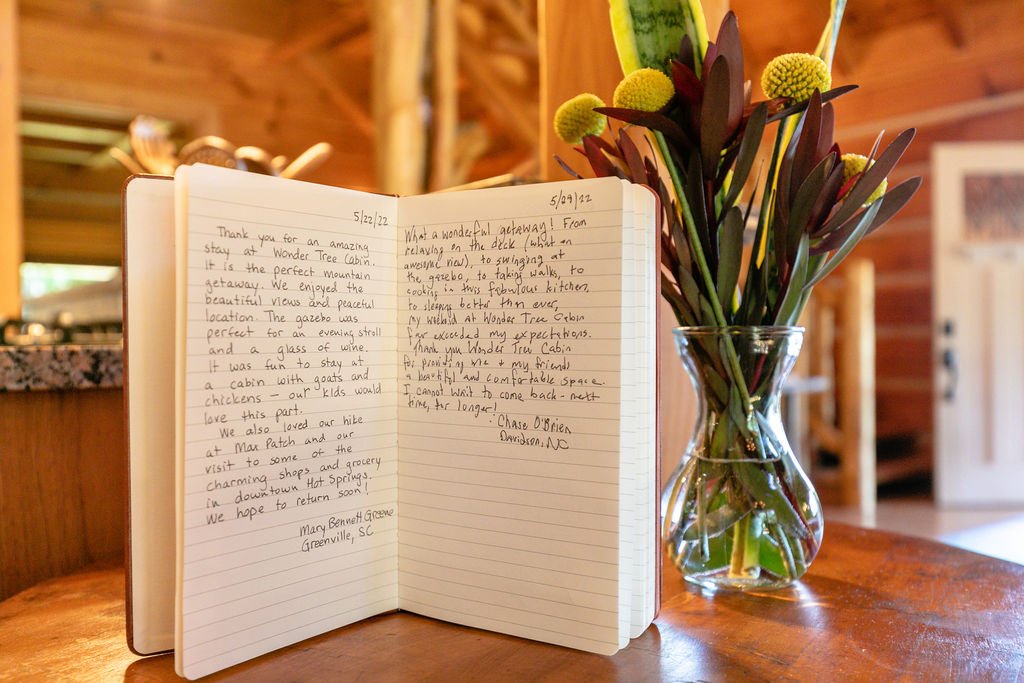 5/22/22
Thank you for an amazing
stay at Wonder Tree Cabin.
It is the perfect mountain
getaway. We enjoyed the
beautiful views and peaceful
location. The gazebo was
perfect for an evening stroll
and a glass of wine.
It was fun to stay at
a cabin with goats and
chickens — our kids would
love this part.
We also loved our hike
at Max Patch and our
visit to some of the
charming shops and grocery
in downtown Hot Springs.
We hope to return soon!
Mary Bennett Greene
Greenville, SC
5/29/22
What a wonderful getaway! From
relaxing on the deck (what an
awesome view), to swinging at
the gazebo, to taking walks, to
cooking in this fabulous kitchen,
to sleeping better than ever,
my weekend at Wonder Tree Cabin
far exceeded my expectations.
Thank you Wonder Tree Cabin
for providing me + my friends
a beautiful and comfortable space.
I cannot wait to come back - next
time, for longer!
Chase O'Brien
Davidson, NC